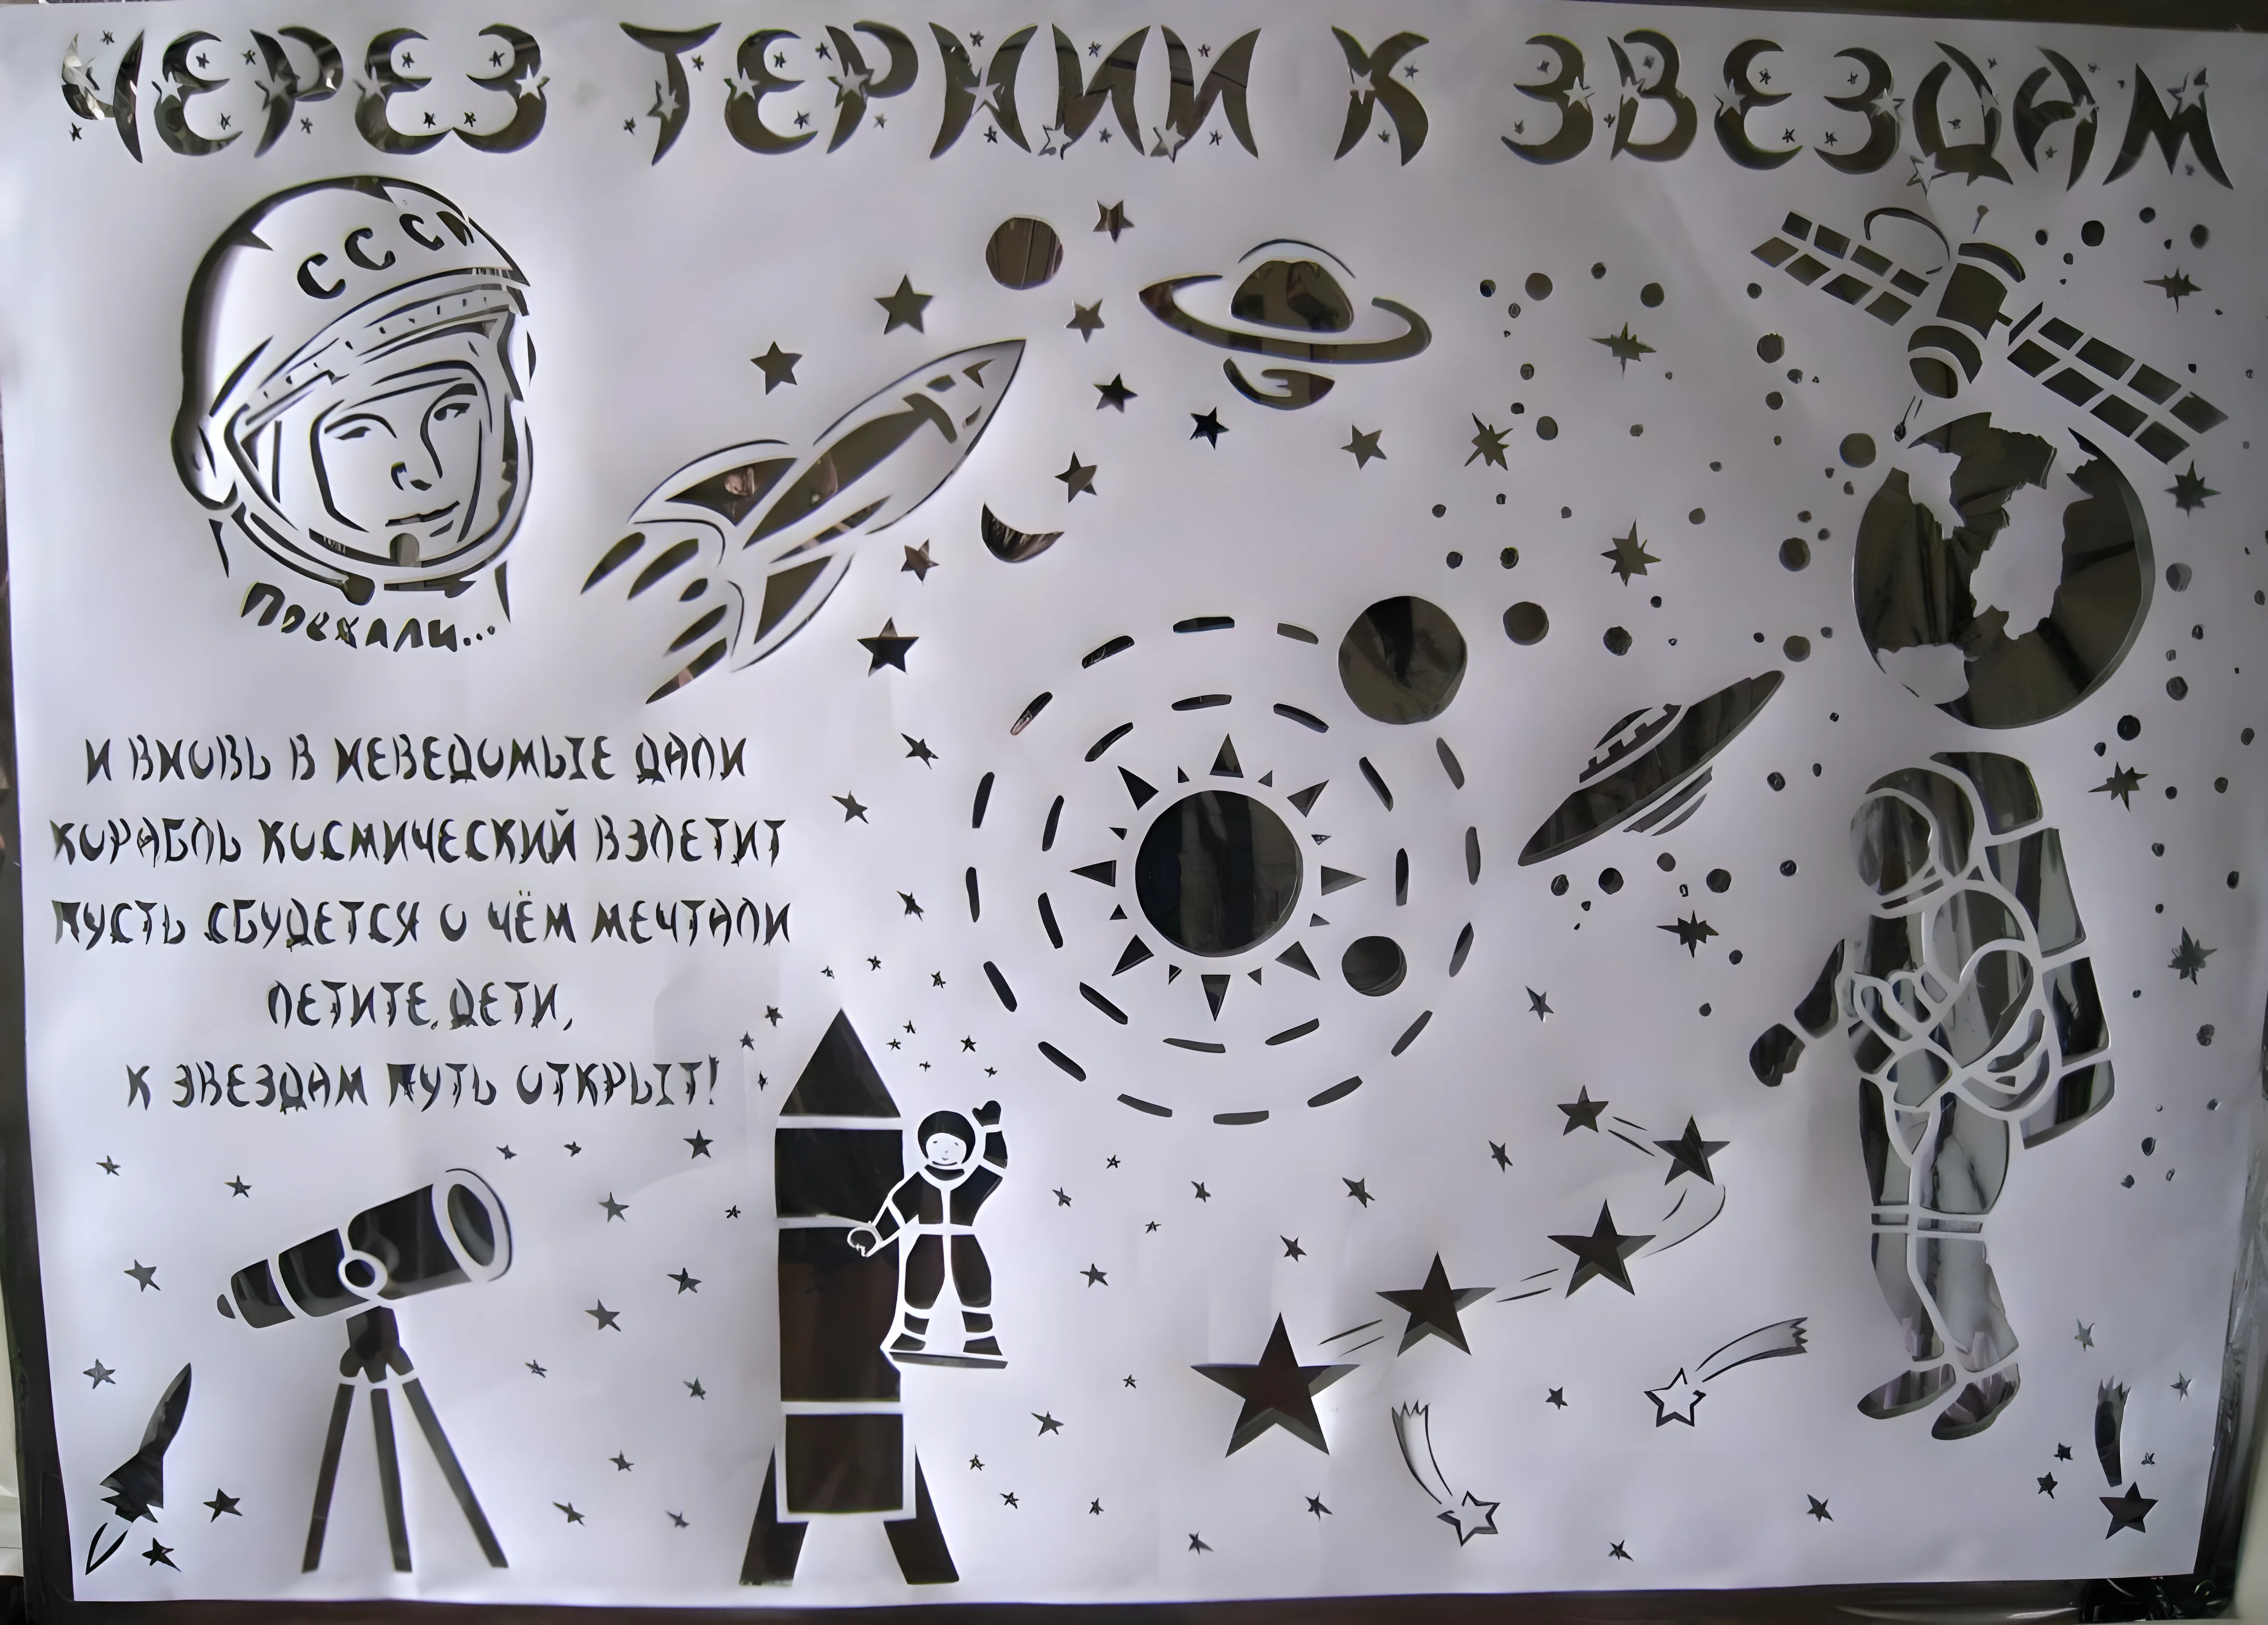 ЧЕРЕЗ ТЕРНИИ К ЗВЕЗДАМ
СССР
Поехали...
И ВНОВЬ В НЕВЕДОМЫЕ ДАЛИ
КОРАБЛЬ КОСМИЧЕСКИЙ ВЗЛЕТИТ
ПУСТЬ СБУДЕТСЯ О ЧЁМ МЕЧТАЛИ
ЛЕТИТЕ, ДЕТИ,
К ЗВЕЗДАМ ПУТЬ ОТКРЫТ!